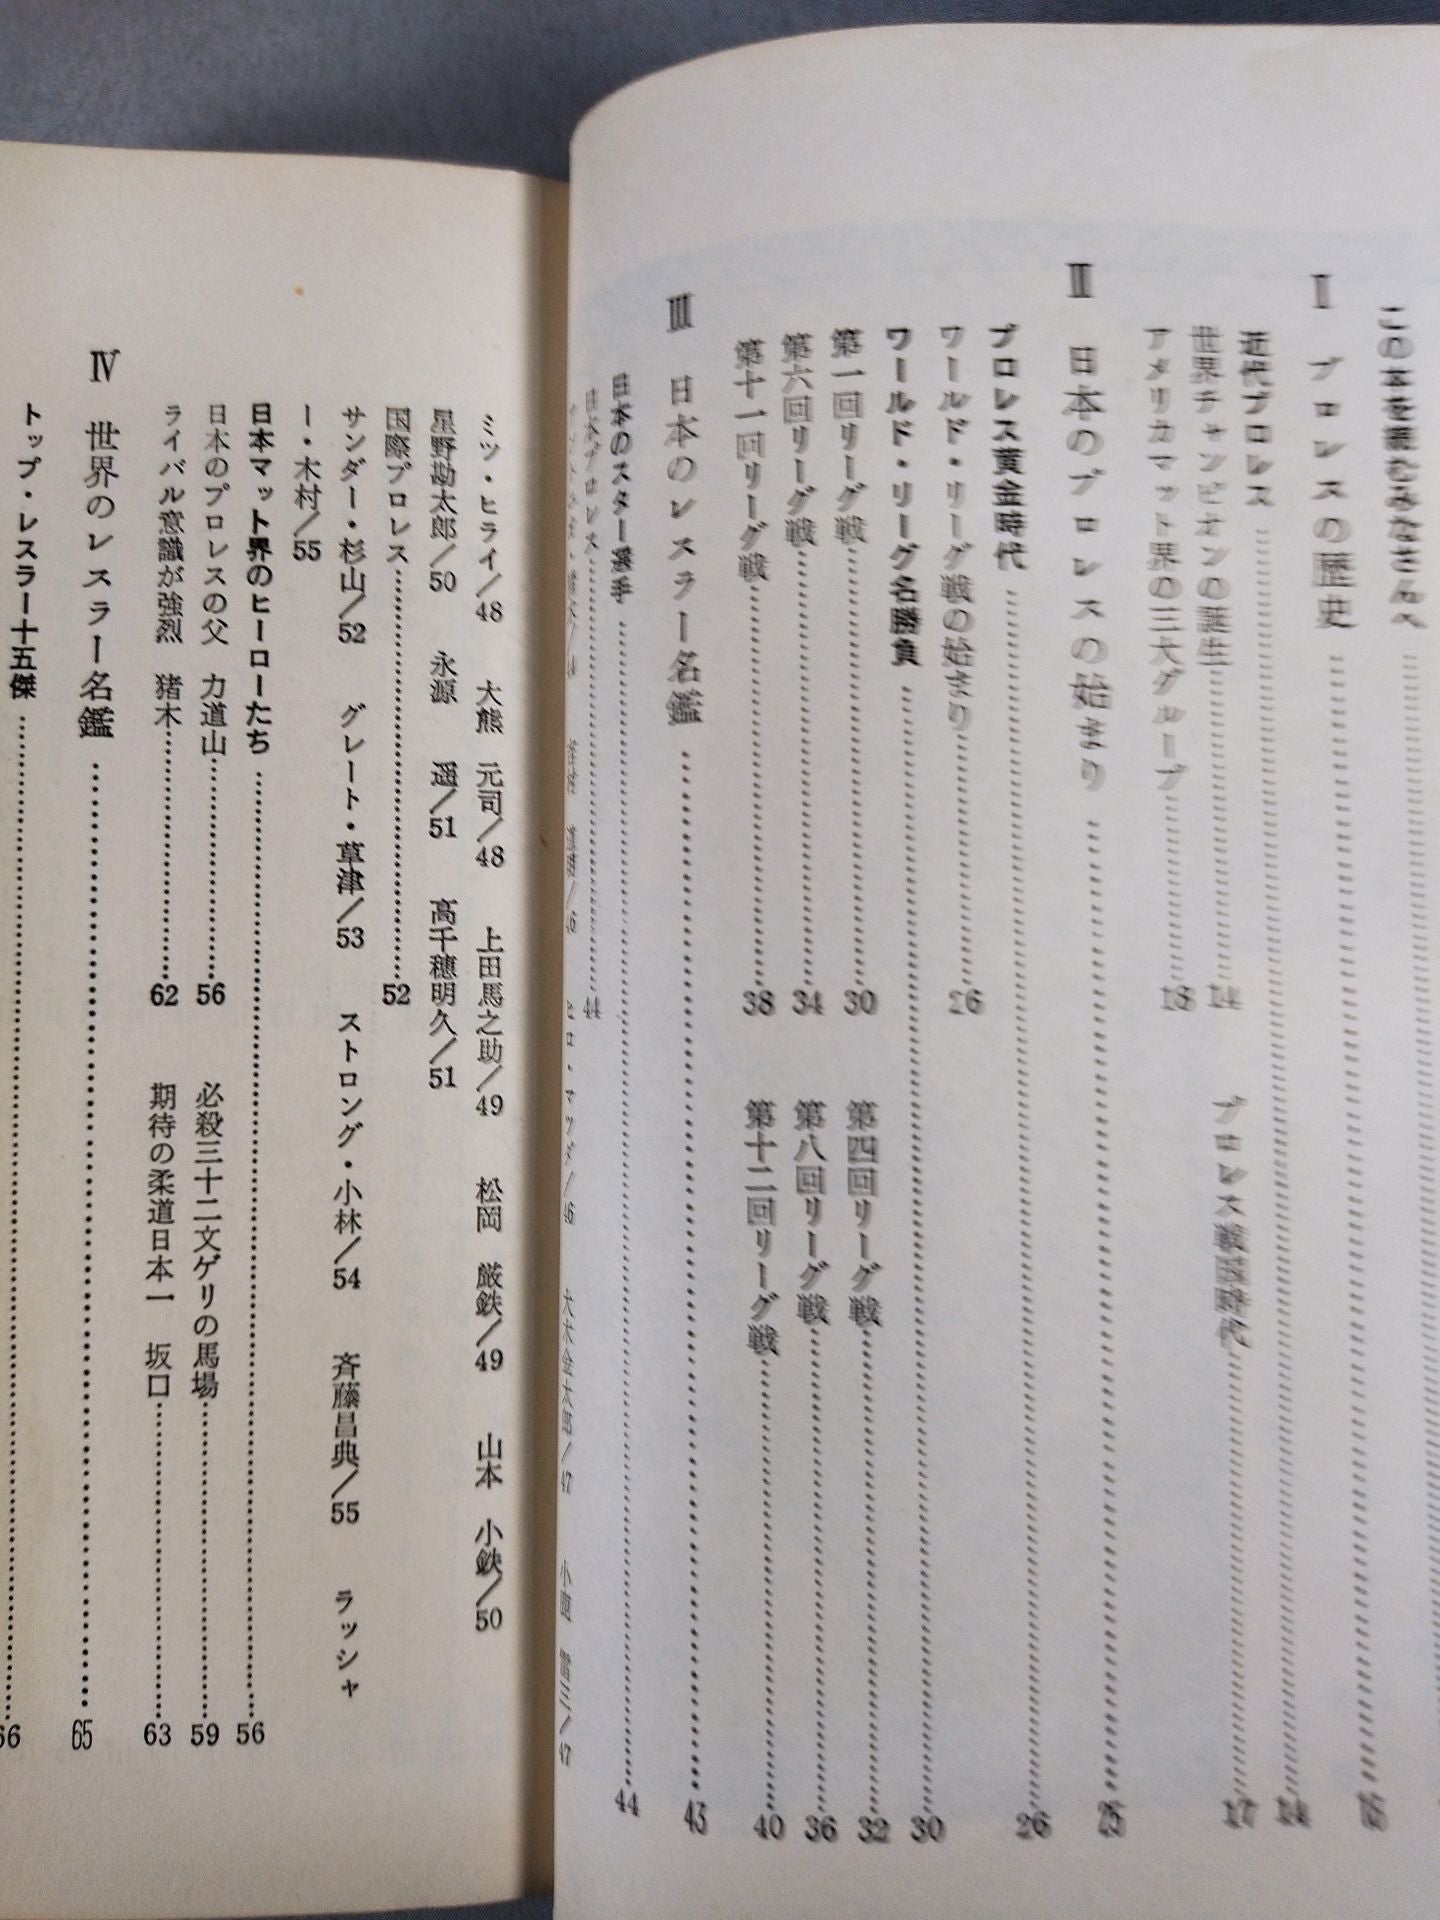 この本を読むみなさんへ
Ⅰ プロレスの歴史
近代プロレス……14
世界チャンピオンの誕生……14 プロレス戦国時代……17
アメリカマット界の三大グループ……18
Ⅱ 日本のプロレスの始まり……25
プロレス黄金時代……26
ワールド・リーグ戦の始まり……26
ワールド・リーグ名勝負……30
第一回リーグ戦……30 第四回リーグ戦……32
第六回リーグ戦……34 第八回リーグ戦……36
第十一回リーグ戦……38 第十二回リーグ戦……40
Ⅲ 日本のレスラー名鑑……43
日本のスター選手……44
日本プロレス……44
ヒロ・マツダ/46 大木金太郎/47 小鹿 雷三/47
ミツ・ヒライ/48 大熊 元司/48 上田馬之助/49 松岡 厳鉄/49 山本 小鉄/50
星野勘太郎/50 永源 遥/51 高千穂明久/51
国際プロレス……52
サンダー・杉山/52 グレート・草津/53 ストロング・小林/54 斉藤昌典/55 ラッシャ
ー・木村/55
日本マット界のヒーローたち……56
日本のプロレスの父 力道山……56 必殺三十二文ゲリの馬場……59
ライバル意識が強烈 猪木……62 期待の柔道日本一 坂口……63
Ⅳ 世界のレスラー名鑑……65
トップ・レスラー十五傑……66